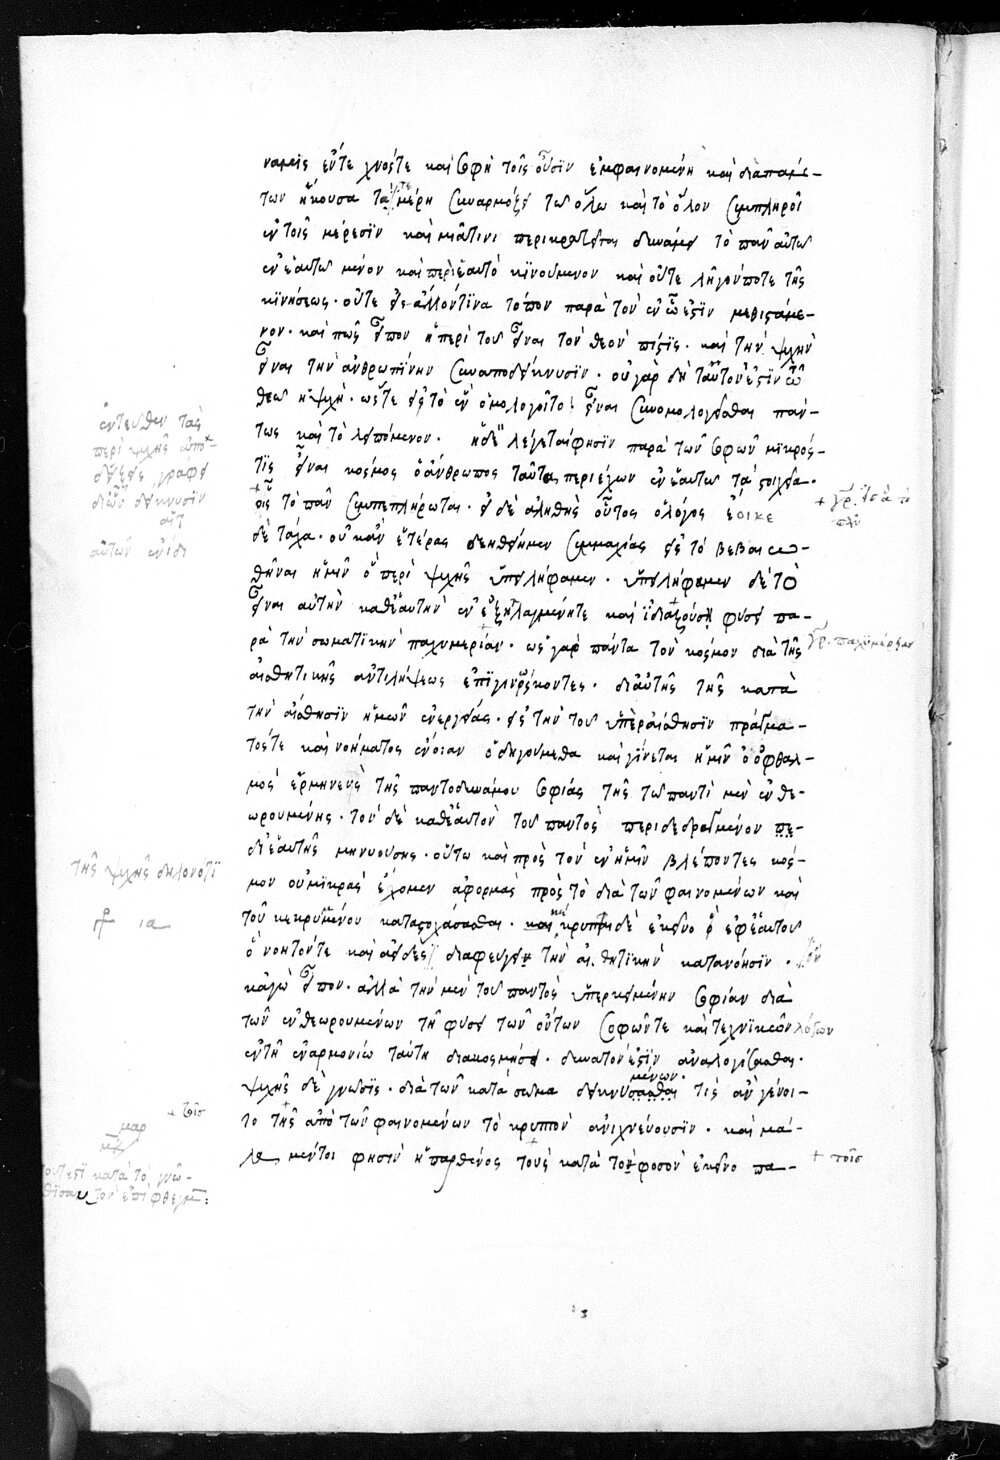 ναμεῖς ἔντε χνοςτε καὶ σοφὴ τοῖς οὖσϊν ἐμφαινομένη καὶ διὰ πάμε-
των ἥκουσα τά τε μέρη συναρμόζει τῶ ὅλω καὶ τὸ ὅλον συμπληροῖ
ἐν τοῖς μέρεσϊν καὶ μιᾶ τινι περικρατεῖται δυνάμει τὸ πᾶν αὐτῶ
ἐν ἑαυτῶ μένον καὶ περὶ ἑαυτὸ κϊνούμενον καὶ οὔτε λῆγόν ποτε τῆς
κϊνήσεως· οὔτε εἰς ἄλλόν τϊνα τόπον παρὰ τὸν ἐν ὧ ἐςϊν μεθιςάμε-
νον· καὶ πῶς εἶπον ἡ περὶ τοῦ εἶναι τὸν θεὸν πίςϊς· καὶ τὴν ψυχὴν
εἶναι τὴν ἀνθρωπϊνην συναποδείκνυσϊν· οὐ γὰρ δὴ ταὐτόν ἐςϊν ὦ
θεῶ ἡ ψυχή· ὥςτε εἰ τὸ ἓν ὁμολογοῖτο εἶναι συνομολογεῖσθαι πάν-
τως καὶ τὸ λειπόμενον· ἡ δὲ λέγεται φησὶν παρὰ τῶν σοφῶν μϊκρός
τϊς εἶναι κόσμος ὁ ἄνθρωπος ταῦτα περιέχων ἐν ἑαυτῶ τὰ ςοιχεῖα·
οἷς τὸ πᾶν συμπεπλήρωται· εἰ δὲ ἀληθὴς οὗτος ὁ λόγος ἔοικε
δὲ τάχα· οὐκ ἂν ἑτέρας δεηθείημεν συμμαχίας εἰς τὸ βεβαιω-
θῆναι ἡμῖν ὃ περὶ ψυχῆς ὑπειλήφαμεν· ὑπειλήφαμεν δὲ τὸ
εἶναι αὐτὴν καθ' ἑαυτὴν ἐν ἐξηλαγμένη τε καὶ ϊδιαζούση φύσει πα-
ρὰ τὴν σωματϊκὴν παχυμερίαν· ὡς γὰρ πάντα τὸν κόσμον διὰ τῆς
αἰσθητικῆς ἀντιλήψεως ἐπϊγινώσκοντες· δι' αὐτῆς τῆς κατὰ
τὴν αἴσθησϊν ἡμῶν ἐνεργείας· εἰς τὴν τοῦ ὑπὲρ αἴσθησϊν πράγμα-
τός τε καὶ νοήματος ἔννοιαν ὁδηγούμεθα καὶ γίνεται ἡμῖν ὁ ὀφθαλ-
μὸς ἑρμηνεὺς τῆς παντοδυνάμου σοφίας τῆς τῶ παντὶ μὲν ἐνθε-
ωρουμένης· τὸν δὲ καθ' ἑαυτὸν τοῦ παντὸς περιδεδραγμένον πε-
δι' ἑαυτῆς μηνυούσης· οὕτω καὶ πρὸς τὸν ἐν ἡμῖν βλέποντες κόσ-
μον οὐ μϊκρὰς ἔχομεν ἀφορμὰς πρὸς τὸ διὰ τῶν φαινομένων καὶ
τοῦ κεκρυμένου καταςοχάσασθαι· καὶ κρυπται δὲ ἐκεῖνο ὃ ἐφ' ἑαυτοῦ
ὃ νοητόν τε καὶ ἀειδὲς διαφεύγει τὴν αἰσθητϊκὴν κατανόησϊν·
κἀγὼ εἶπον· ἀλλὰ τὴν μὲν τοῦ παντὸς ὑπερκειμένην σοφίαν διὰ
τῶν ἐνθεωρουμένων τῆ φύσει τῶν ὄντων σοφῶν τε καὶ τεχνϊκῶν λόγων
ἐν τῆ ἐναρμονίω ταύτη διακοσμήσει· δυνατόν ἐςϊν ἀναλογίσασθαι·
ψυχῆς δὲ γνῶσϊς· διὰ τῶν κατὰ σῶμα δεικνυσθαι μένων· τίς ἂν γένοι-
το τῆς ἀπὸ τῶν φαινομένων τὸ κρυπτὸν ἀνιχνεύουσϊν· καὶ μά-
λα μέντοι φησὶν ἡ παρθένος τοὺς κατὰ τὸ σοφὸν ἐκεῖνο πα-
ἐντεῦθεν τὰς
περὶ ψυχῆς ἀπο-
δείξεις γράφει
διὧν δείκνυσϊν
+ γρ. εἰσὰ τὸ
πᾶν
γρ. παχυμέρειαν
τῆς ψυχῆς δηλονότϊ
ια
+ τοῖς
μαρ
κατὰ τὸ γνῶ-
θϊσαυτον ἐπίφθεγμ:
+ τοῖς